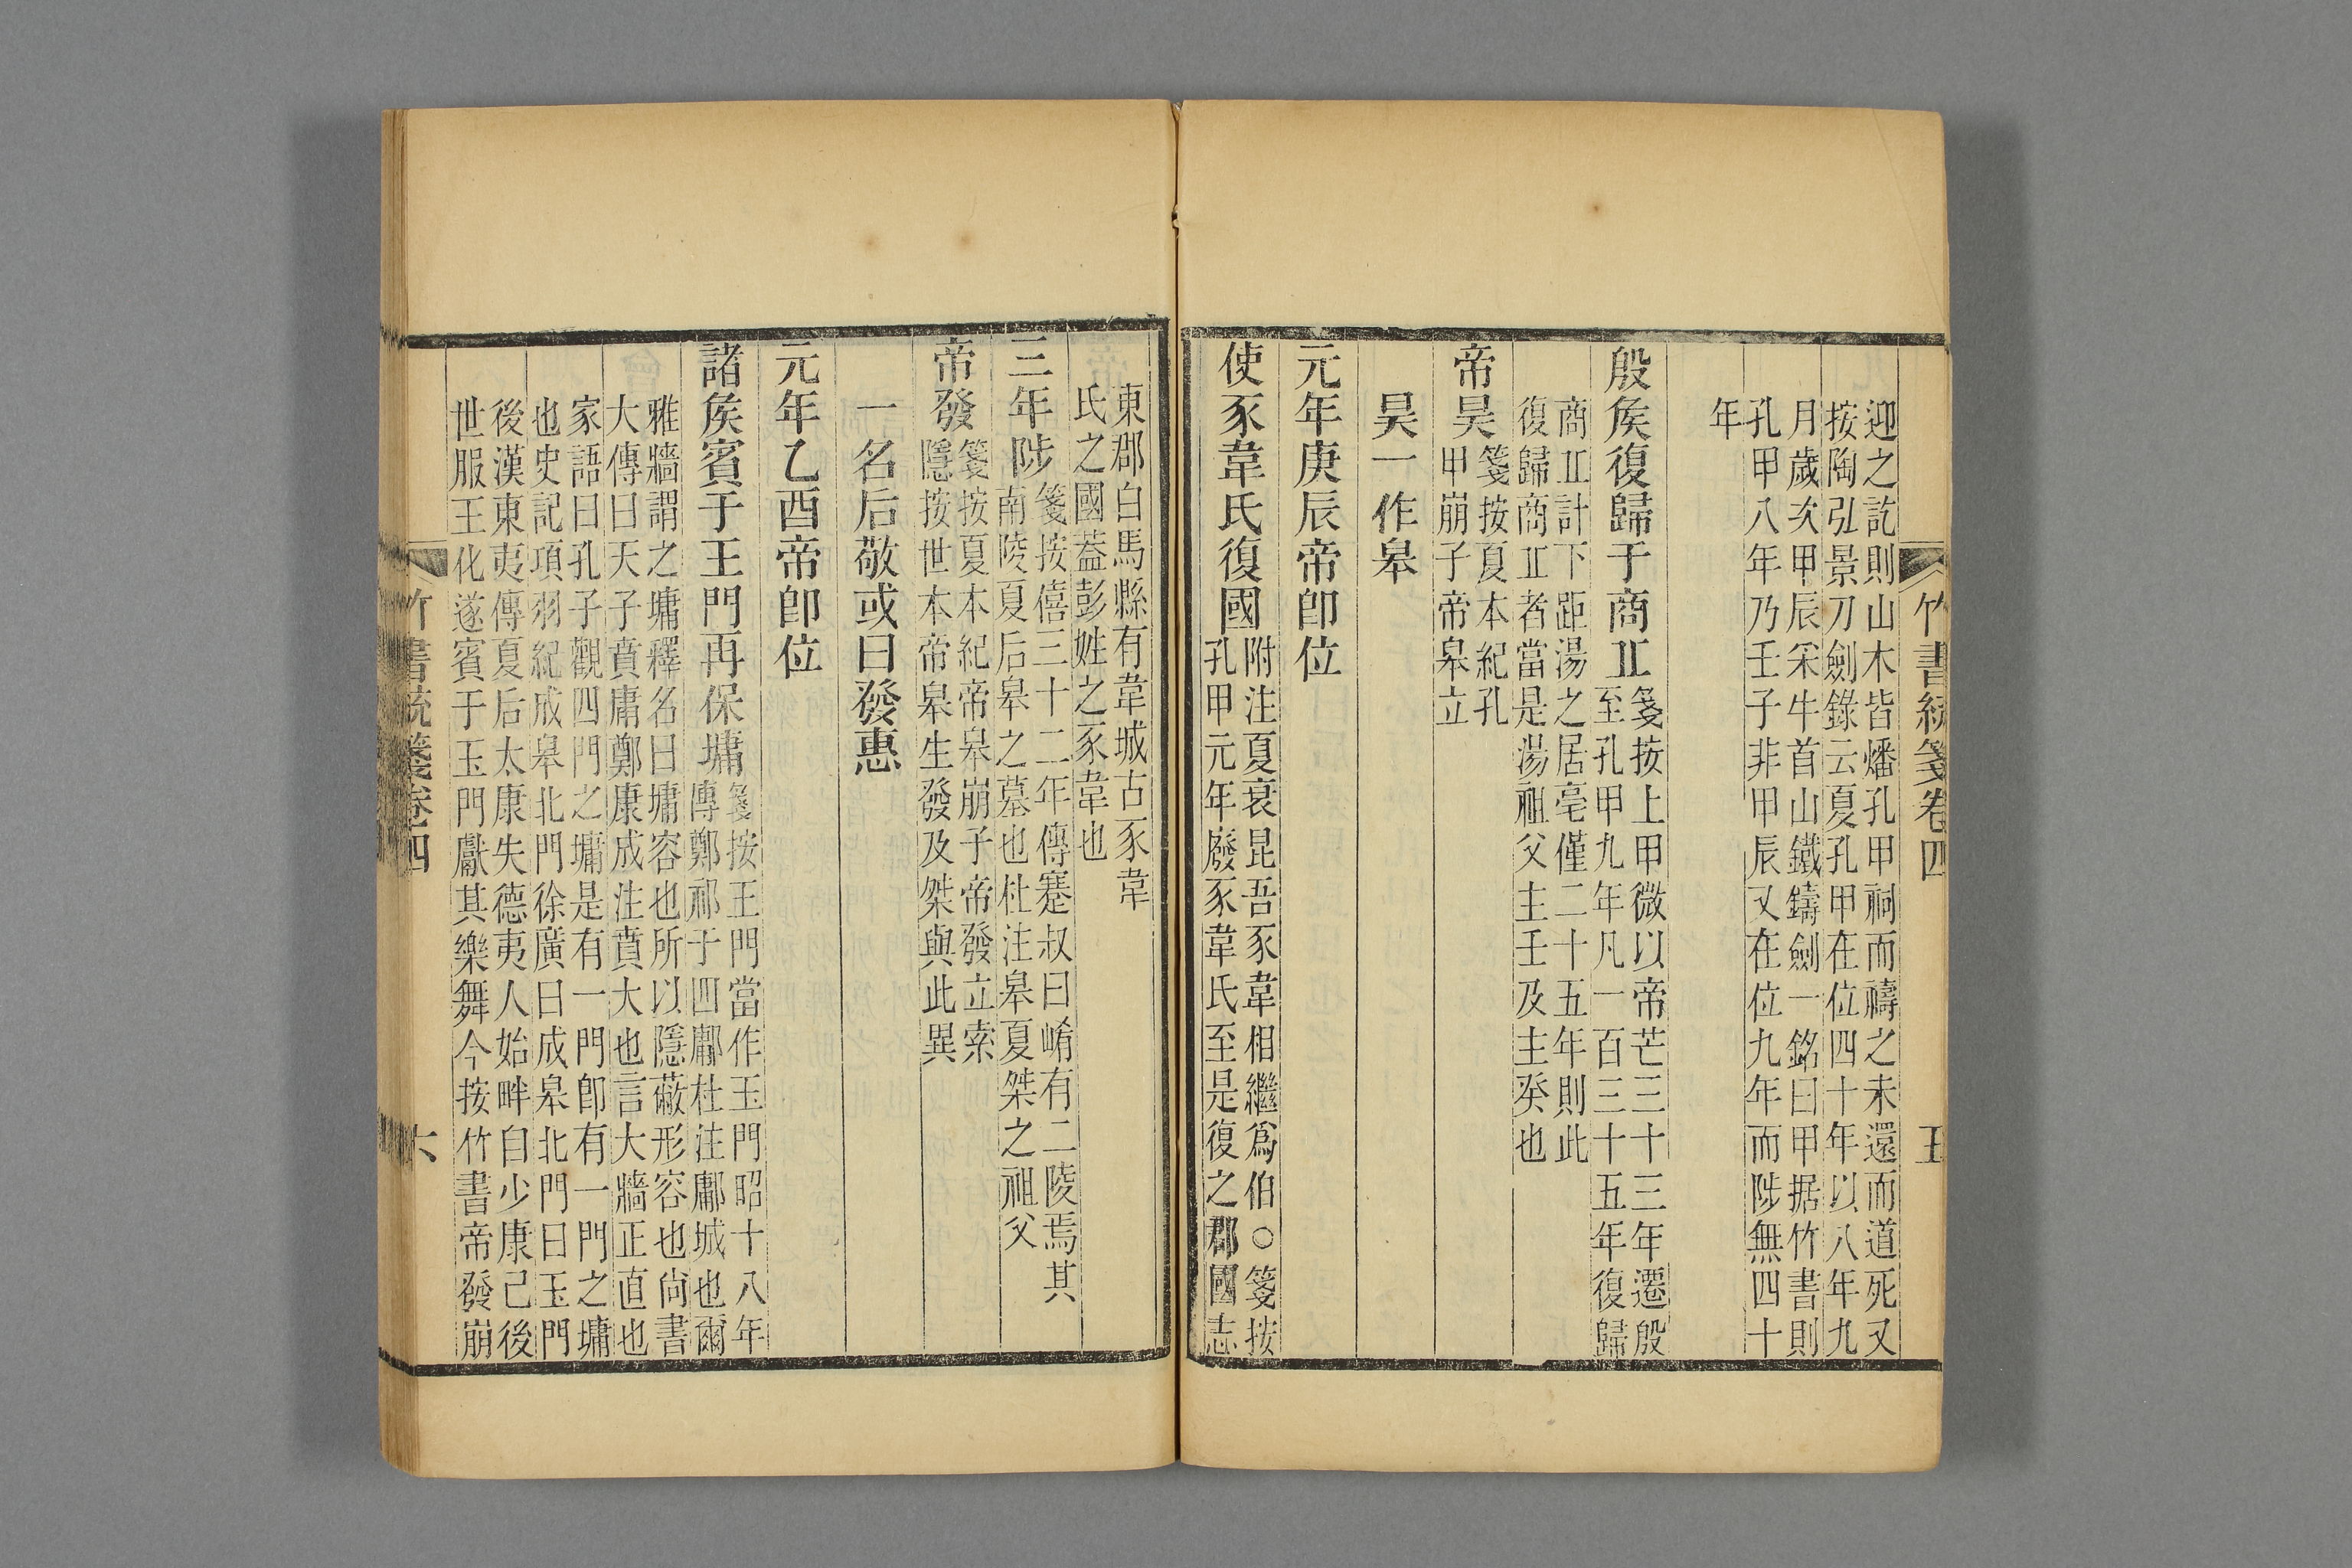 竹書統箋卷四
五
迎之訖則山木皆燔孔甲祠而禱之未還而道死又
按陶弘景刀劍錄云夏孔甲在位四十年以八年九
月歲次甲辰采牛首山鐵鑄劍一銘曰甲据竹書則
孔甲八年乃壬子非甲辰又在位九年而陟無四十
年
殷矦復歸于商丠
箋按上甲微以帝芒三十三年遷殷
至孔甲九年凡一百三十五年復歸
商丠計下距湯之居亳僅二十五年則此
復歸商丠者當是湯祖父主壬及主癸也
帝昊
箋按夏本紀孔
甲崩子帝皋立
昊一作皋
元年庚辰帝卽位
使豕韋氏復國
附注夏衰昆吾豕韋相繼爲伯○箋按
孔甲元年廢豕韋氏至是復之郡國志
東郡白馬縣有韋城古豕韋
氏之國葢彭姓之豕韋也
三年陟
箋按僖三十二年傳蹇叔曰崤有二陵焉其
南陵夏后皋之墓也杜注皋夏桀之祖父
帝發
箋按夏本紀帝皋崩子帝發立索
隱按世本帝皋生發及桀與此異
一名后敬或曰發惠
元年乙酉帝卽位
諸矦賓于王門再保墉
箋按王門當作玉門昭十八年
傳鄭祁于四鄘杜注鄘城也爾
雅牆謂之墉釋名曰墉容也所以隱蔽形容也尙書
大傳曰天子賁庸鄭康成注賁大也言大牆正直也
家語曰孔子觀四門之墉是有一門卽有一門之墉
也史記項羽紀成皋北門徐廣曰成皋北門曰玉門
後漢東夷傳夏后太康失德夷人始畔自少康己後
世服王化遂賓于玉門獻其樂舞今按竹書帝發崩
竹書統箋卷四
六